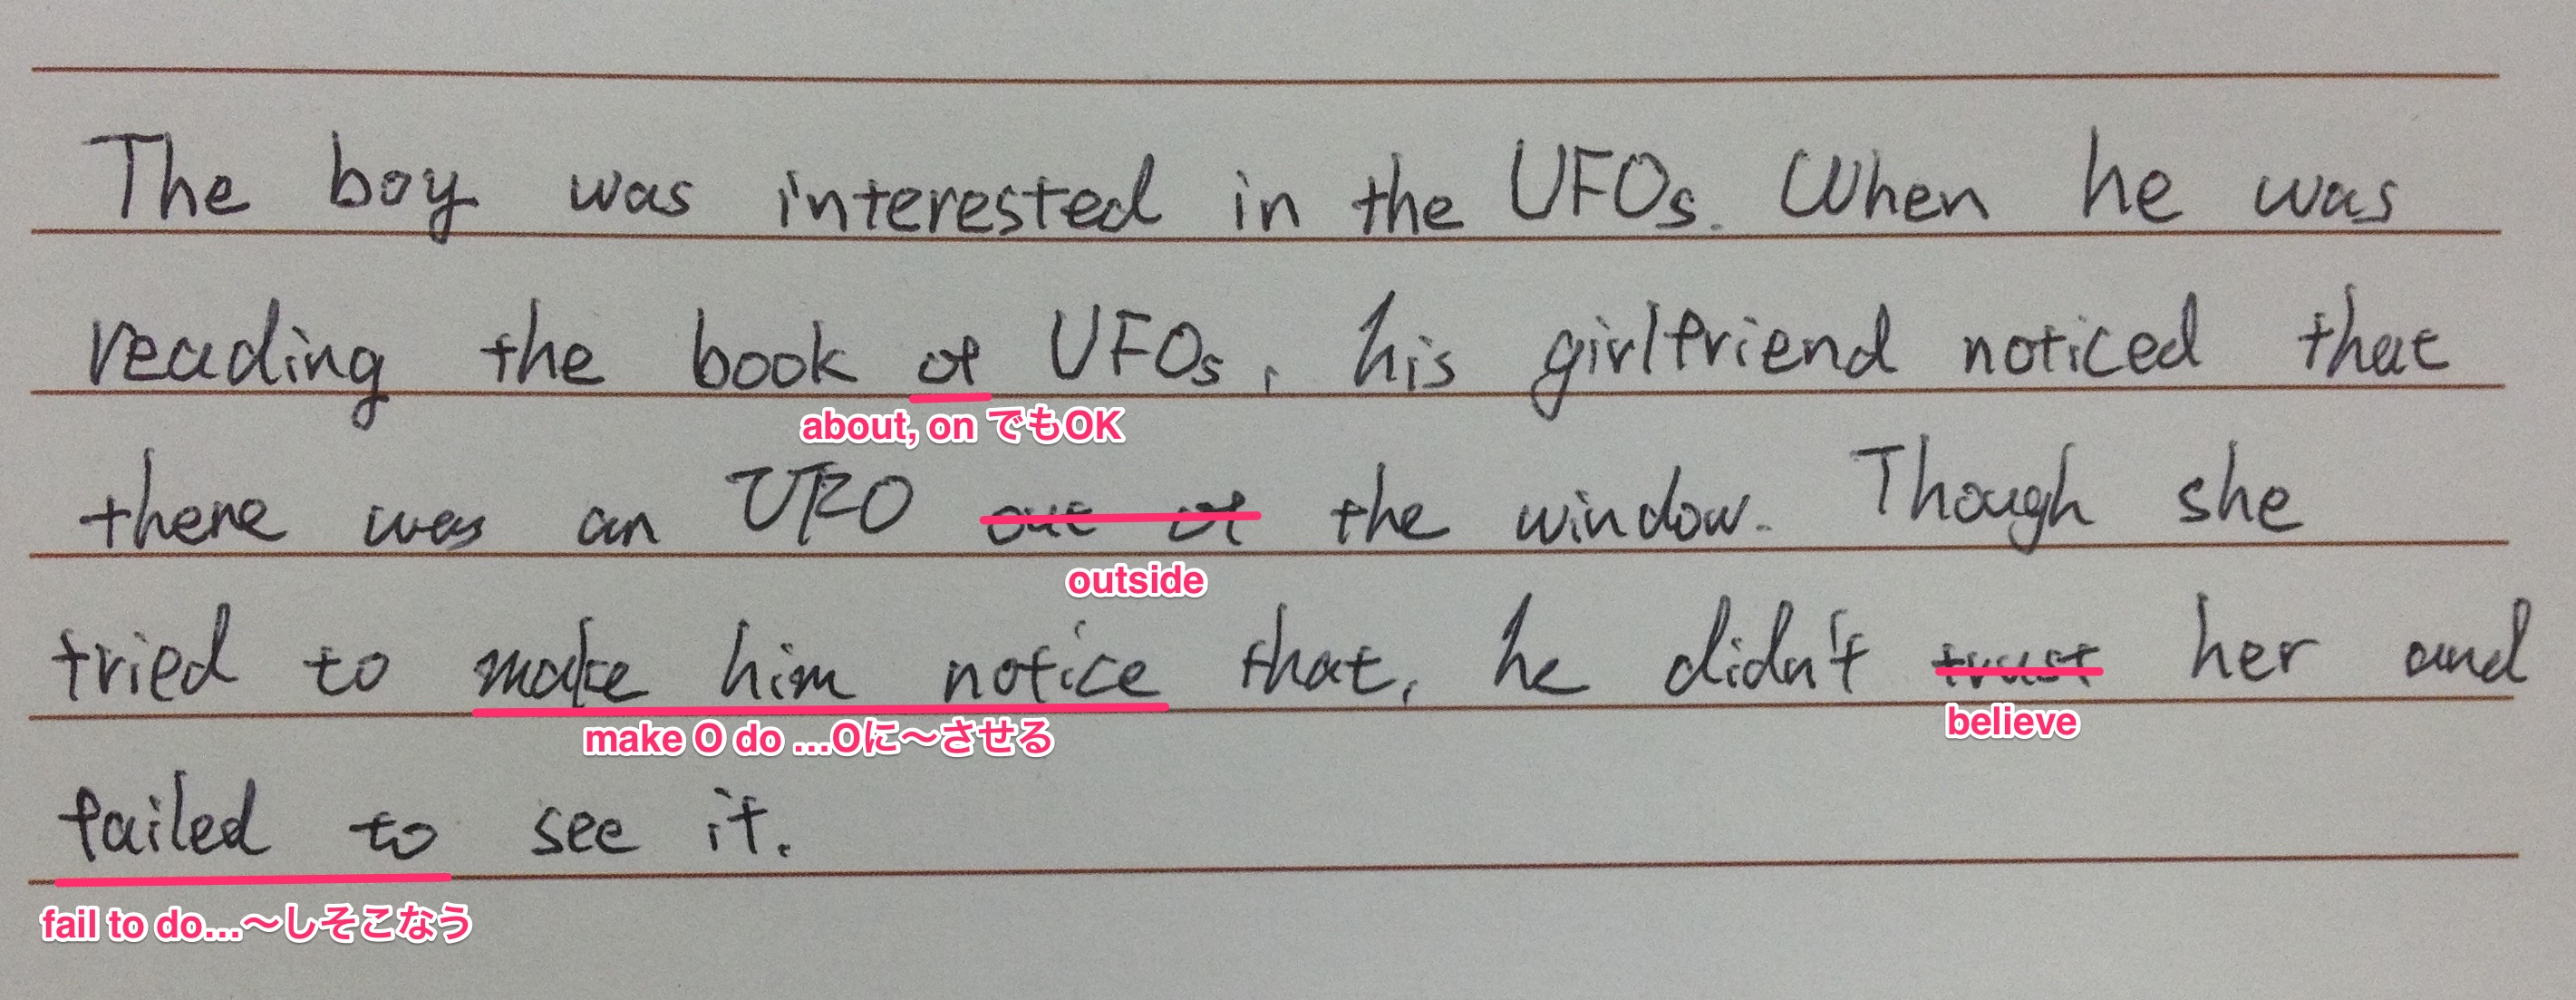 The boy was interested in the UFOs. When he was
reading the book of UFOs, his girlfriend noticed that
about, on でもOK
there was an UFO out of the window. Though she
outside
tried to make him notice that, he didn't trust her and
make O do ...Oに〜させる
believe
failed to see it.
fail to do...〜しそこなう